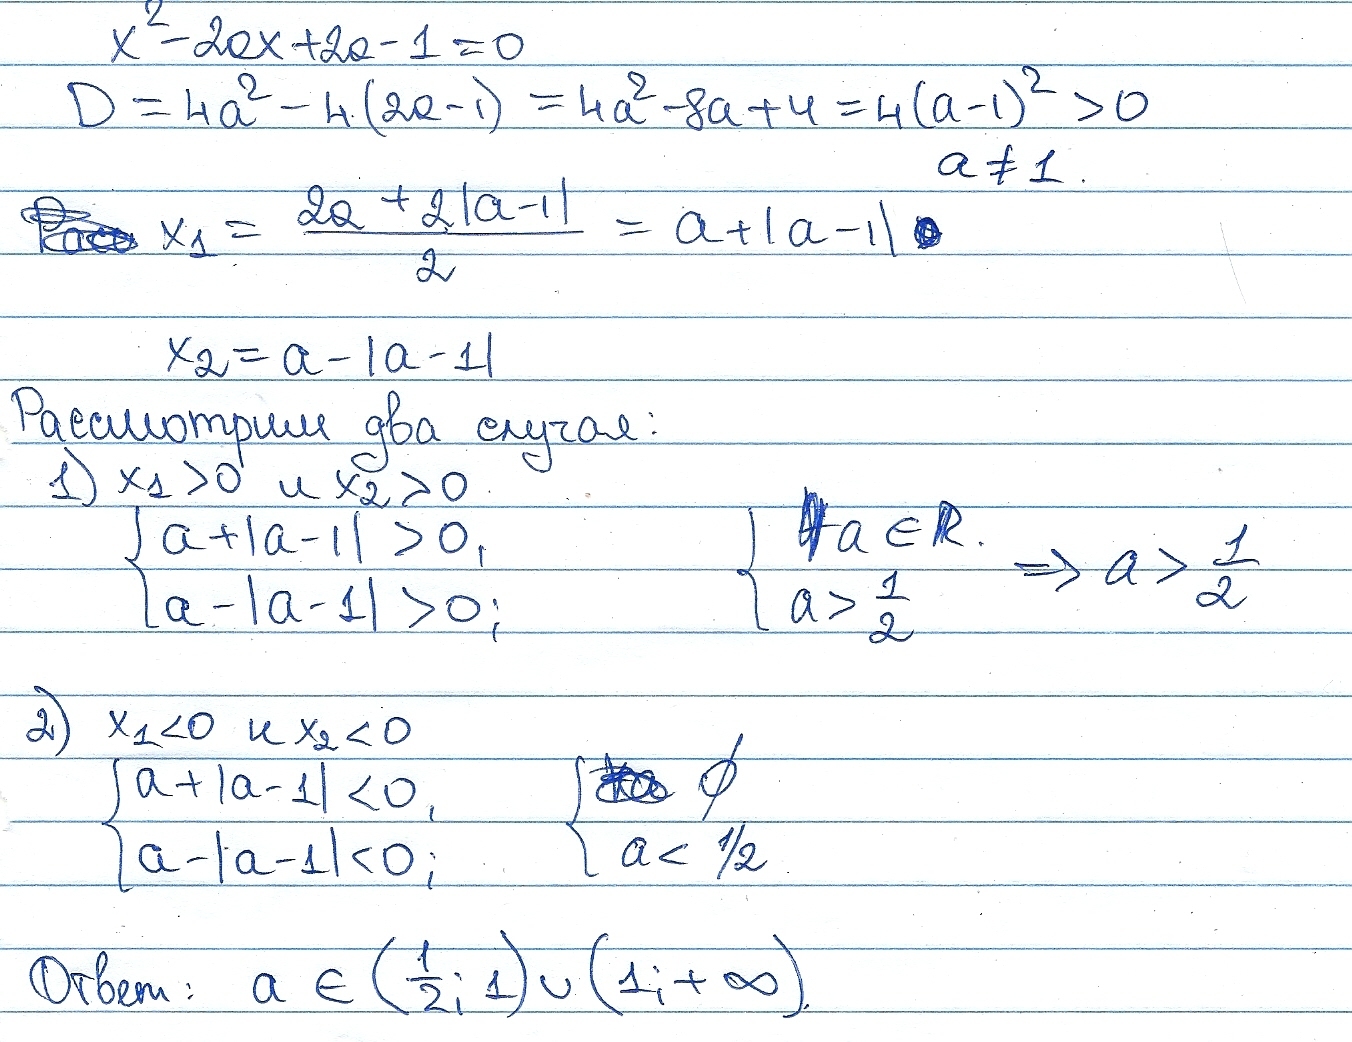 x² - 2ax + 2a - 1 = 0
D = 4a² - 4(2a - 1) = 4a² - 8a + 4 = 4(a - 1)² > 0
a ≠ 1.
x₁ = (2a + 2|a - 1|)/2 = a + |a - 1|
x₂ = a - |a - 1|
Рассмотрим два случая:
1) x₁ > 0 и x₂ > 0
{ a + |a - 1| > 0, { ∀a ∈ R. ⇒ a > 1/2
{ a - |a - 1| > 0; { a > 1/2
2) x₁ < 0 и x₂ < 0
{ a + |a - 1| < 0, { ∅
{ a - |a - 1| < 0; { a < 1/2
Ответ: a ∈ (1/2; 1) ∪ (1; +∞).